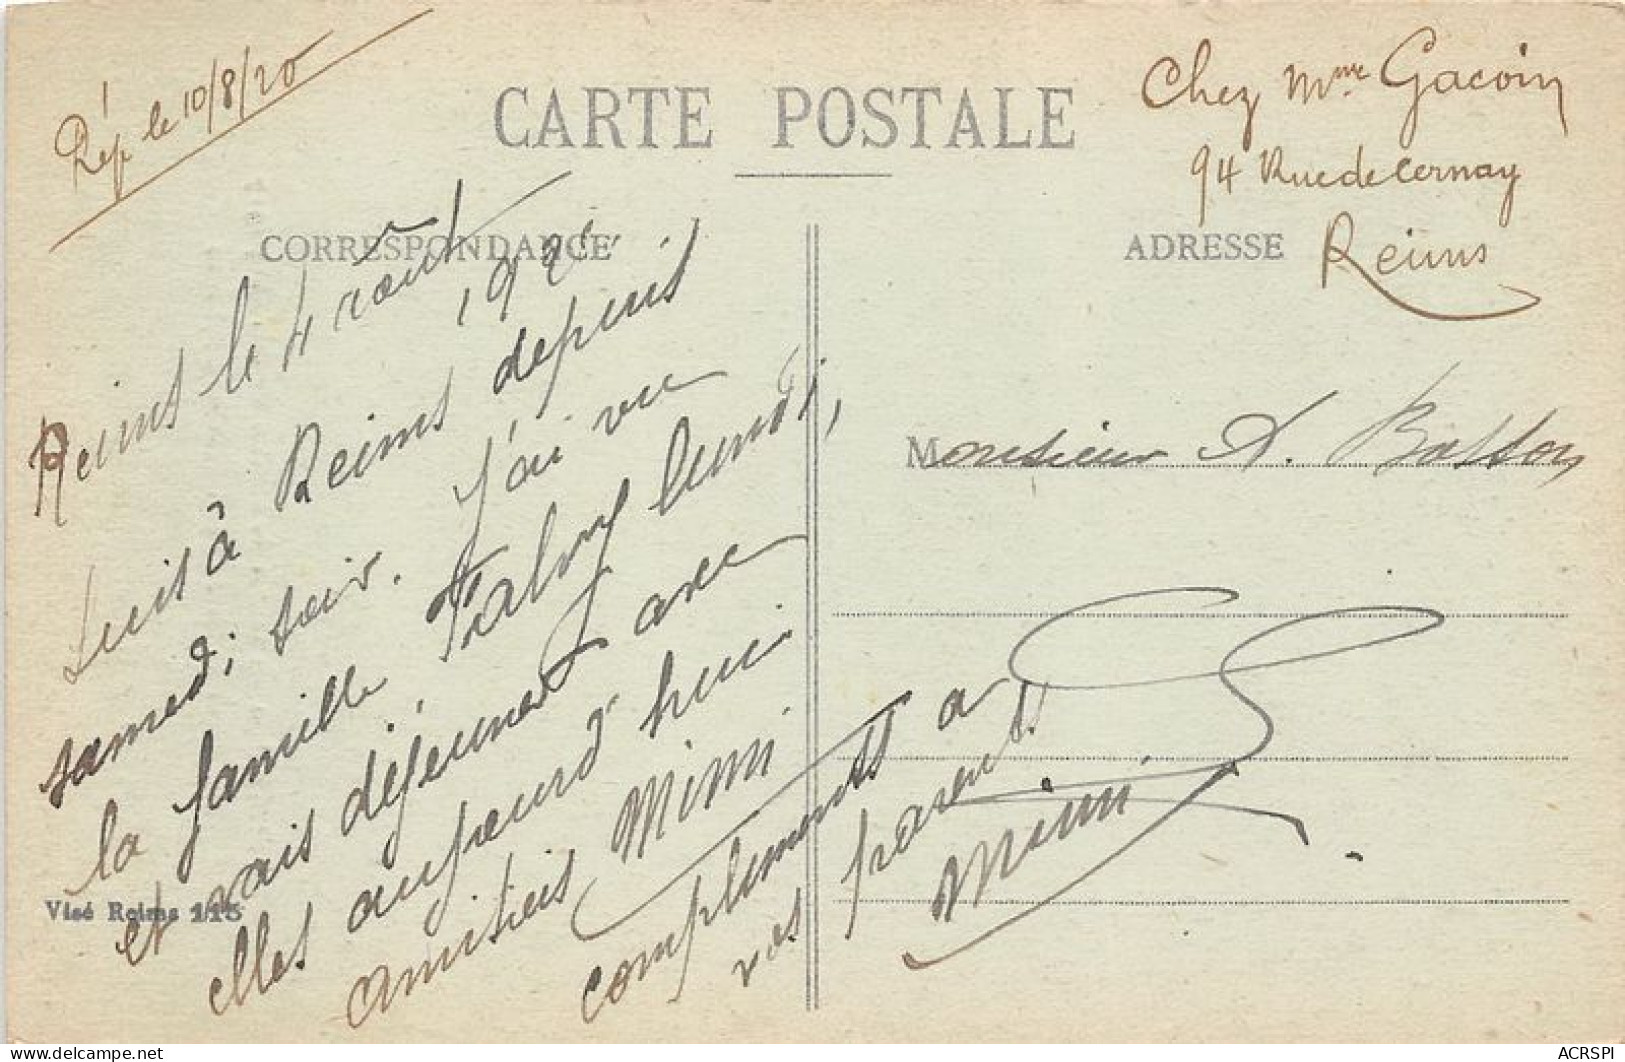 Rép le 10/8/20
CARTE POSTALE
Chez Mme Gacoin
94 Rue de Cernay
Reims
CORRESPONDANCE
ADRESSE
Reims le 4 août
192
suis à Reims depuis
samedi soir. J'ai vu
la famille lundi,
et vais déjeuner avec
elles aujourd'hui
amitiés Mimi
compliments à
vos parents
Mimi
Monsieur A. Basson
Visé Reims 115
ACRSPI